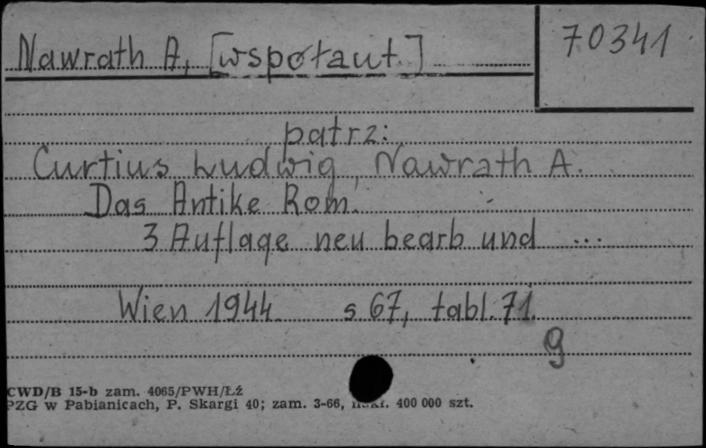 Nawrath A, [współaut.]
70341
patrz:
Curtius Ludwig, Nawrath A.
Das Antike Rom.
3 Auflage neu bearb und ...
Wien 1944 s 67, tabl. 71.
g
CWD/B 15-b zam. 4065/PWH/Łź
PZG w Pabianicach, P. Skargi 40; zam. 3-66, 400 000 szt.